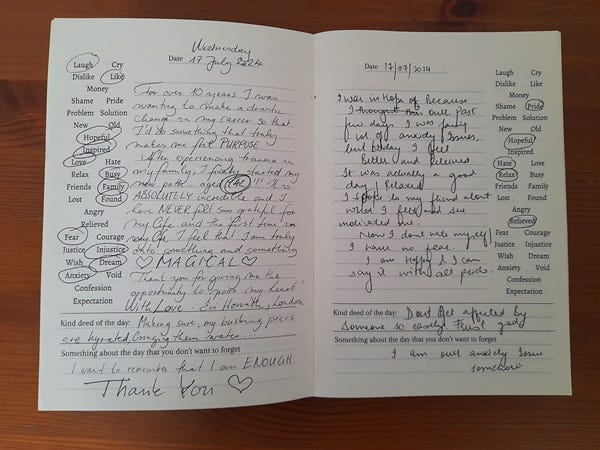 Wednesday
Date 17 July 2024
Laugh Cry
Dislike Like
Money
Shame Pride
Problem Solution
New Old
Hopeful
Inspired
Love Hate
Relax Busy
Friends Family
Lost Found
Angry
Relieved
Fear Courage
Justice Injustice
Wish Dream
Anxiety Void
Confession
Expectation
For over 10 years I was
wanting to make a drastic
change in my career so that
I'd do something that truly
makes me feel PURPOSE
After experiencing trauma in
my family, I finally started my
new path... aged 42!! It is
ABSOLUTELY incredible and I
have NEVER felt soo grateful for
my life and the first time in
my life I feel that I am truly
onto something and something
♡ MAGICAL ♡
Thank you for giving me the
opportunity to my heart!
With Love London
Kind deed of the day: Making sure, my peers
are hydrated (bringing them water...
Something about the day that you don't want to forget
I want to remember that I am ENOUGH
THANK YOU ♡
Date 17/07/2024
I was in Hope of Because
I thought this past
few days I was facing
lot of anxiety Issues,
but today I feel
Better and Relieved.
It was actually a good
day, Relaxed
I spoke to my friend about
what I felt and she
motivated me.
Now I don't hate myself
I have no fear.
I am Happy & I can
say it with all pride.
Laugh Cry
Dislike Like
Money
Shame Pride
Problem Solution
New Old
Hopeful
Inspired
Hate Love
Relax Busy
Friends Family
Lost Found
Angry
Relieved
Fear Courage
Justice Injustice
Wish Dream
Anxiety Void
Confession
Expectation
Kind deed of the day: Dont Get affected by
Someone so easily. Trust god
Something about the day that you don't want to forget
I am over anxiety Issue
somehow.